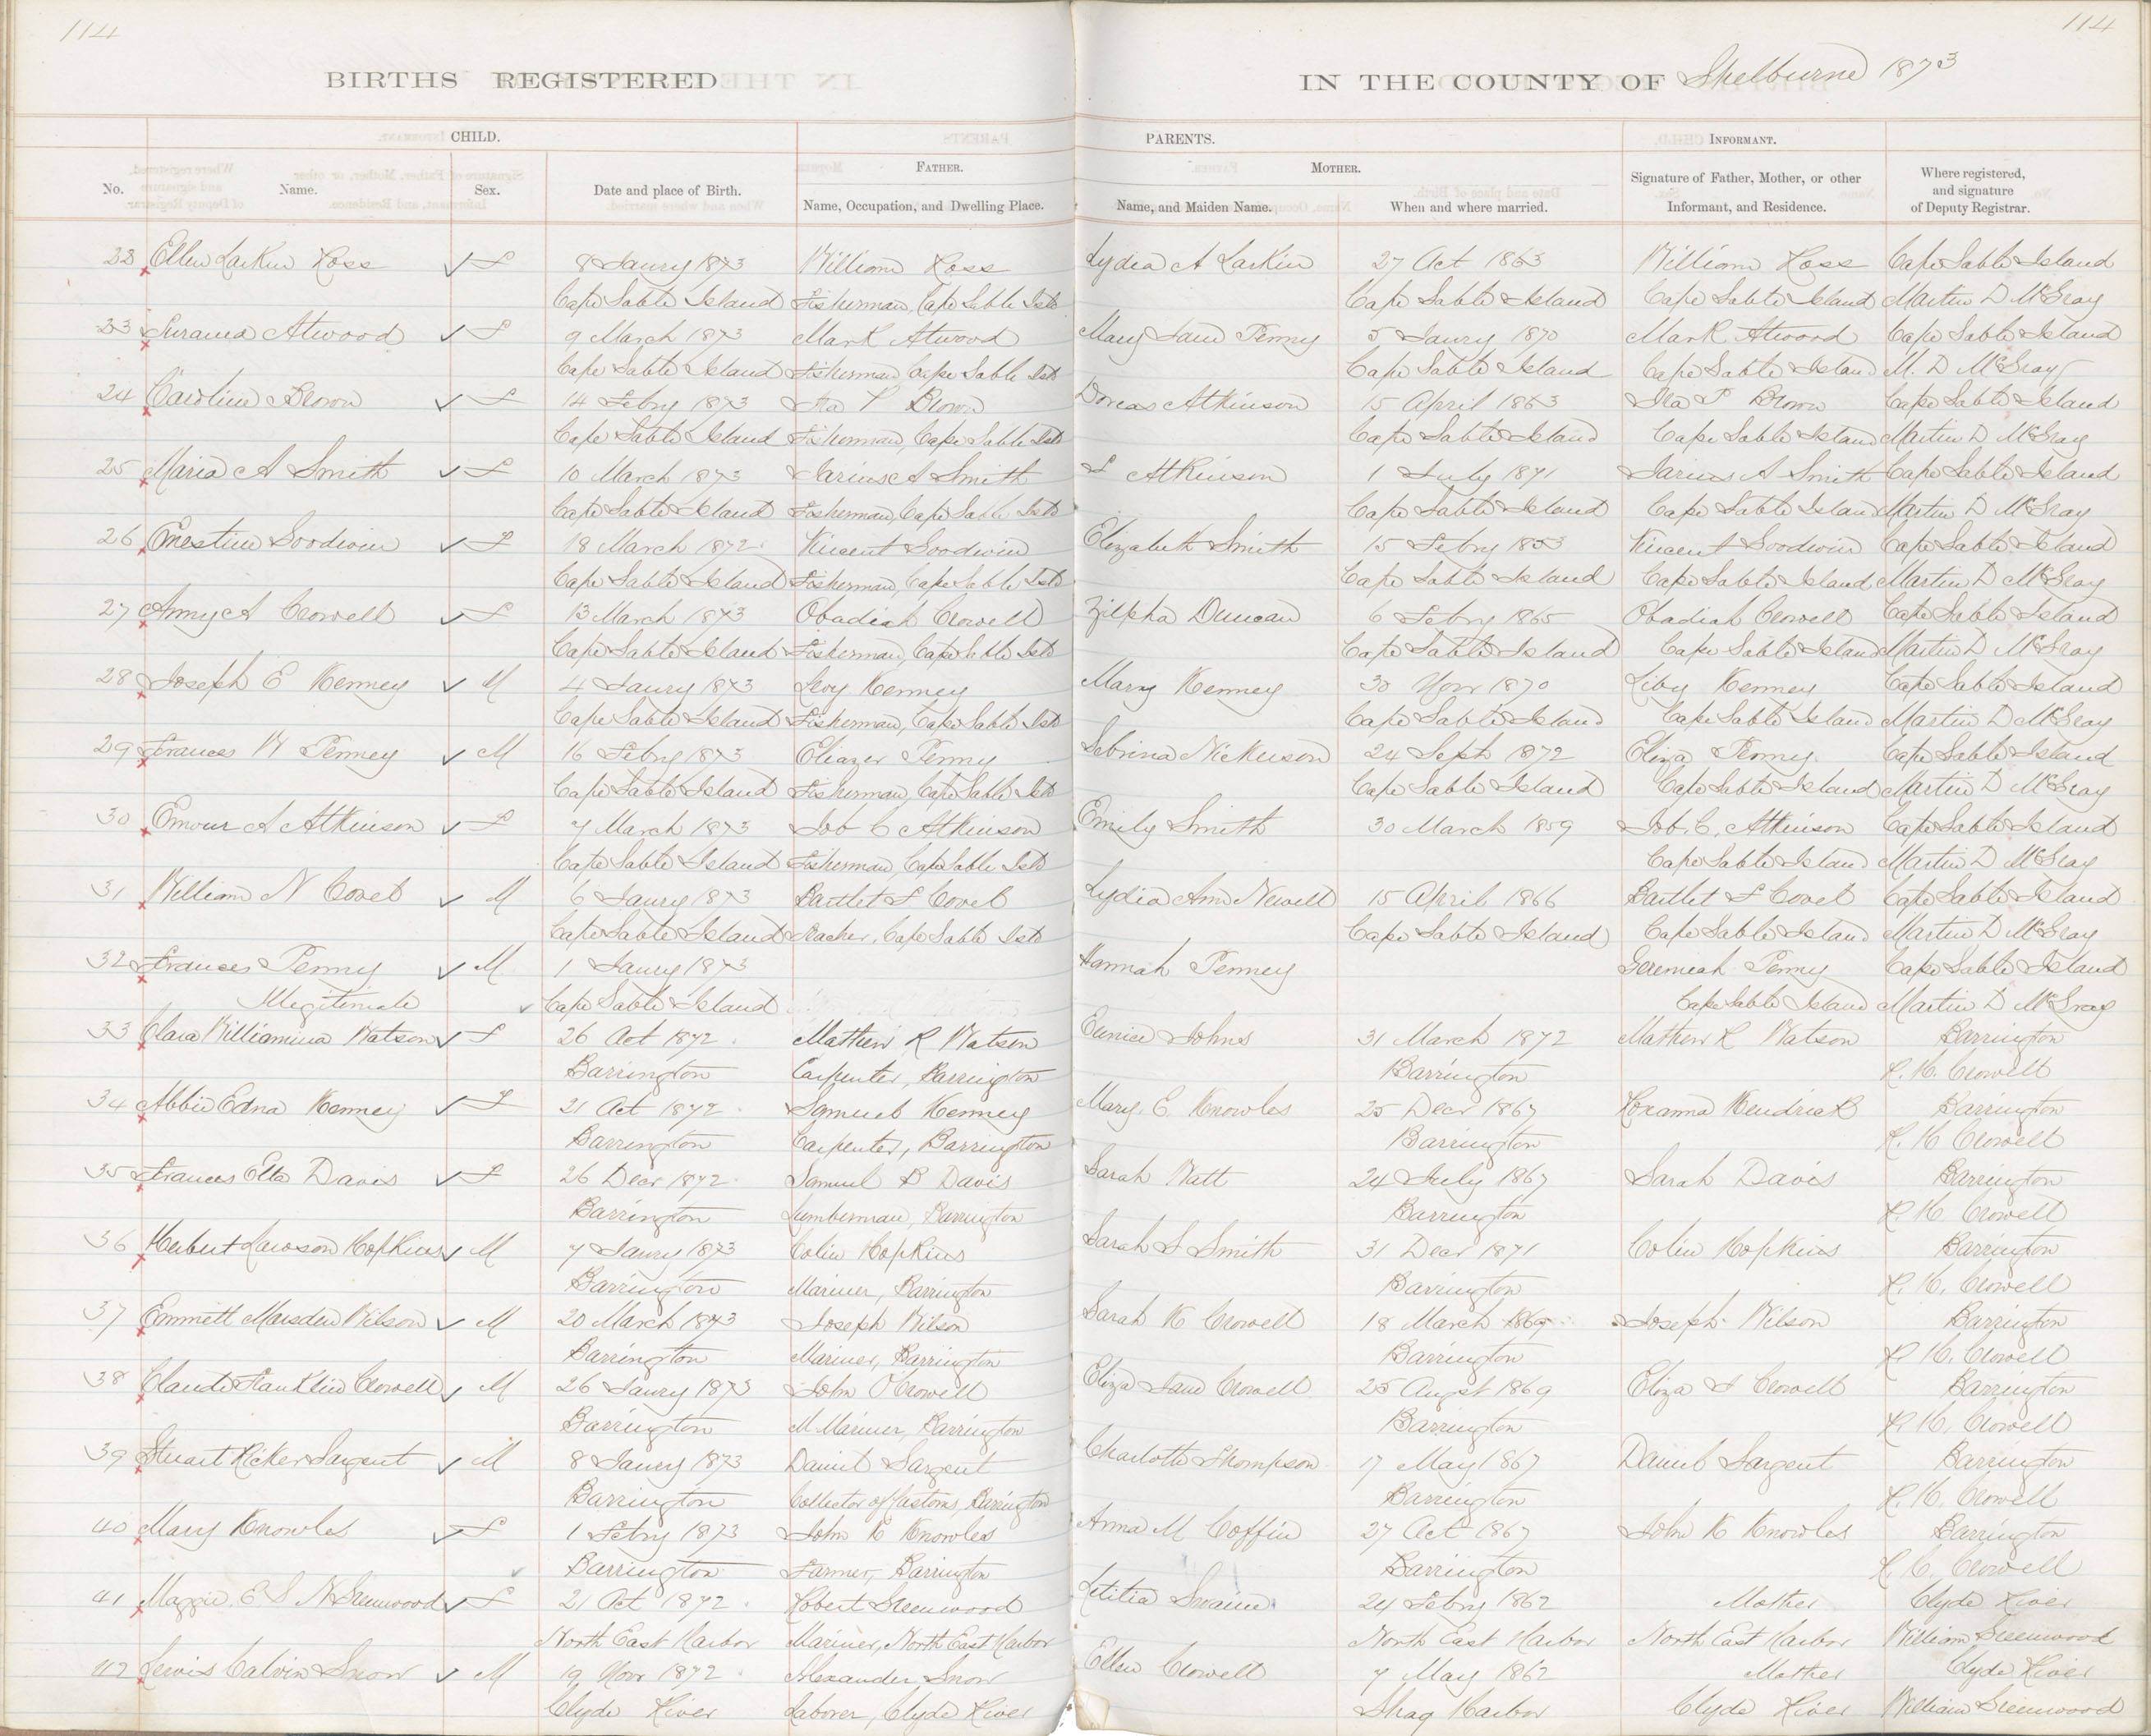 114
114
BIRTHS REGISTERED
IN THE COUNTY OF Shelburne 1873
CHILD.
PARENTS.
INFORMANT.
FATHER.
MOTHER.
No.
Name.
Sex.
Date and place of Birth.
Name, Occupation, and Dwelling Place.
Name, and Maiden Name.
When and where married.
Signature of Father, Mother, or other
Informant, and Residence.
Where registered,
and signature
of Deputy Registrar.
23 Ellen Larkin Ross ✓ F 8 Jaury 1873 William Ross Lydia A Larkin 27 Oct 1863 William Ross Cape Sable Island
Cape Sable Island Fisherman, Cape Sable Isld Cape Sable Island Cape Sable Island Martin D McGray
23 Atwood ✓ F 9 March 1873 Mark Atwood Mary Jane Penny 5 Jaury 1870 Mark Atwood Cape Sable Island
Cape Sable Island Fisherman, Cape Sable Isld Cape Sable Island Cape Sable Island M. D McGray
24 Caroline Brown ✓ F 14 Febry 1873 Ira P Brown Dorcas Atkinson 15 April 1863 Ira P Brown Cape Sable Island
Cape Sable Island Fisherman, Cape Sable Isld Cape Sable Island Cape Sable Island Martin D McGray
25 Maria A Smith ✓ F 10 March 1873 Jarius A Smith Atkinson 1 July 1871 Jarius A Smith Cape Sable Island
Cape Sable Island Fisherman, Cape Sable Isld Cape Sable Island Cape Sable Island Martin D McGray
26 Ernestine Goodwin ✓ F 18 March 1872 Vincent Goodwin Elizabeth Smith 15 Febry 1853 Vincent Goodwin Cape Sable Island
Cape Sable Island Fisherman, Cape Sable Isld Cape Sable Island Cape Sable Island Martin D McGray
27 Amy A Crowell ✓ F 13 March 1873 Obadiah Crowell Zilpha Duncan 6 Febry 1865 Obadiah Crowell Cape Sable Island
Cape Sable Island Fisherman, Cape Sable Isld Cape Sable Island Cape Sable Island Martin D McGray
28 Joseph E Kenney ✓ M 4 Jaury 1873 Levy Kenney Mary Kenney 30 Novr 1870 Kenney Cape Sable Island
Cape Sable Island Fisherman, Cape Sable Isld Cape Sable Island Cape Sable Island Martin D McGray
29 Frances W Penney ✓ M 16 Febry 1873 Eliazer Penny Sebrina Nickerson 24 Sept 1872 Eliza Penny Cape Sable Island
Cape Sable Island Fisherman, Cape Sable Isld Cape Sable Island Cape Sable Island Martin D McGray
30 A Atkinson ✓ F 7 March 1873 Job C Atkinson Emily Smith 30 March 1859 Job. C. Atkinson Cape Sable Island
Cape Sable Island Fisherman, Cape Sable Isld Cape Sable Island Martin D McGray
31 William N Covel ✓ M 6 Jaury 1873 Bartlet F Covel Lydia Ann Newell 15 April 1866 Bartlet F Covel Cape Sable Island
Cape Sable Island Teacher, Cape Sable Isld Cape Sable Island Cape Sable Island Martin D McGray
32 Frances Penny ✓ M 1 Jaury 1873 Hannah Penney Geremiah Penny Cape Sable Island
Illegitimate ✓ Cape Sable Island Cape Sable Island Martin D McGray
33 Clara Williamina Watson ✓ F 26 Oct 1872 Mathew R Watson Eunice Johns 31 March 1872 Mathew R Watson Barrington
Barrington Carpenter, Barrington Barrington R. H. Crowell
34 Abbie Edna Kenney ✓ F 21 Oct 1872 Samuel Kenney Mary. E. Knowles 25 Decr 1867 Roxanna Kendrick Barrington
Barrington Carpenter, Barrington Barrington R. H Crowell
35 Frances Etta Davis ✓ F 26 Decr 1872 Samuel B Davis Sarah Watt 24 July 1867 Sarah Davis Barrington
Barrington Lumberman, Barrington Barrington R. H. Crowell
36 Herbert Lawson Hopkins ✓ M 7 Jaury 1873 Colin Hopkins Sarah S Smith 31 Decr 1871 Colin Hopkins Barrington
Barrington Mariner, Barrington Barrington R. H. Crowell
37 Emmett Marsden Wilson ✓ M 20 March 1873 Joseph Wilson Sarah K Crowell 18 March 1869 Joseph Wilson Barrington
Barrington Mariner, Barrington Barrington R H. Crowell
38 Claude Franklin Crowell ✓ M 26 Jaury 1873 John O Crowell Eliza Jane Crowell 25 Augst 1869 Eliza J Crowell Barrington
Barrington M Mariner, Barrington Barrington R. H. Crowell
39 Stuart Ricker Sargent ✓ M 8 Jaury 1873 Daniel Sargent Charlotte Thompson 17 May 1867 Daniel Sargent Barrington
Barrington Collector of Customs, Barrington Barrington R. H. Crowell
40 Mary Knowles ✓ F 1 Febry 1873 John K Knowles Anna M Coffin 27 Oct 1867 John K Knowles Barrington
Barrington Farmer, Barrington Barrington R. H. Crowell
41 Maggie. E S N Greenwood ✓ F 21 Oct 1872 Robert Greenwood Letitia Swaine 24 Febry 1862 Mother Clyde River
North East Harbor Mariner, North East Harbor North East Harbor North East Harbor William Greenwood
42 Lewis Calvin Snow ✓ M 19 Novr 1872 Alexander Snow Ellen Crowell 7 May 1862 Mother Clyde River
Clyde River Laborer, Clyde River Shag Harbor Clyde River William Greenwood